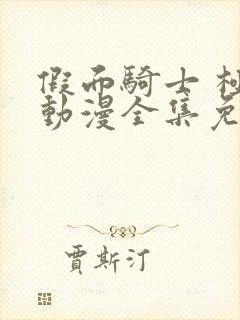 假面騎士
動漫全集免
賈斯汀